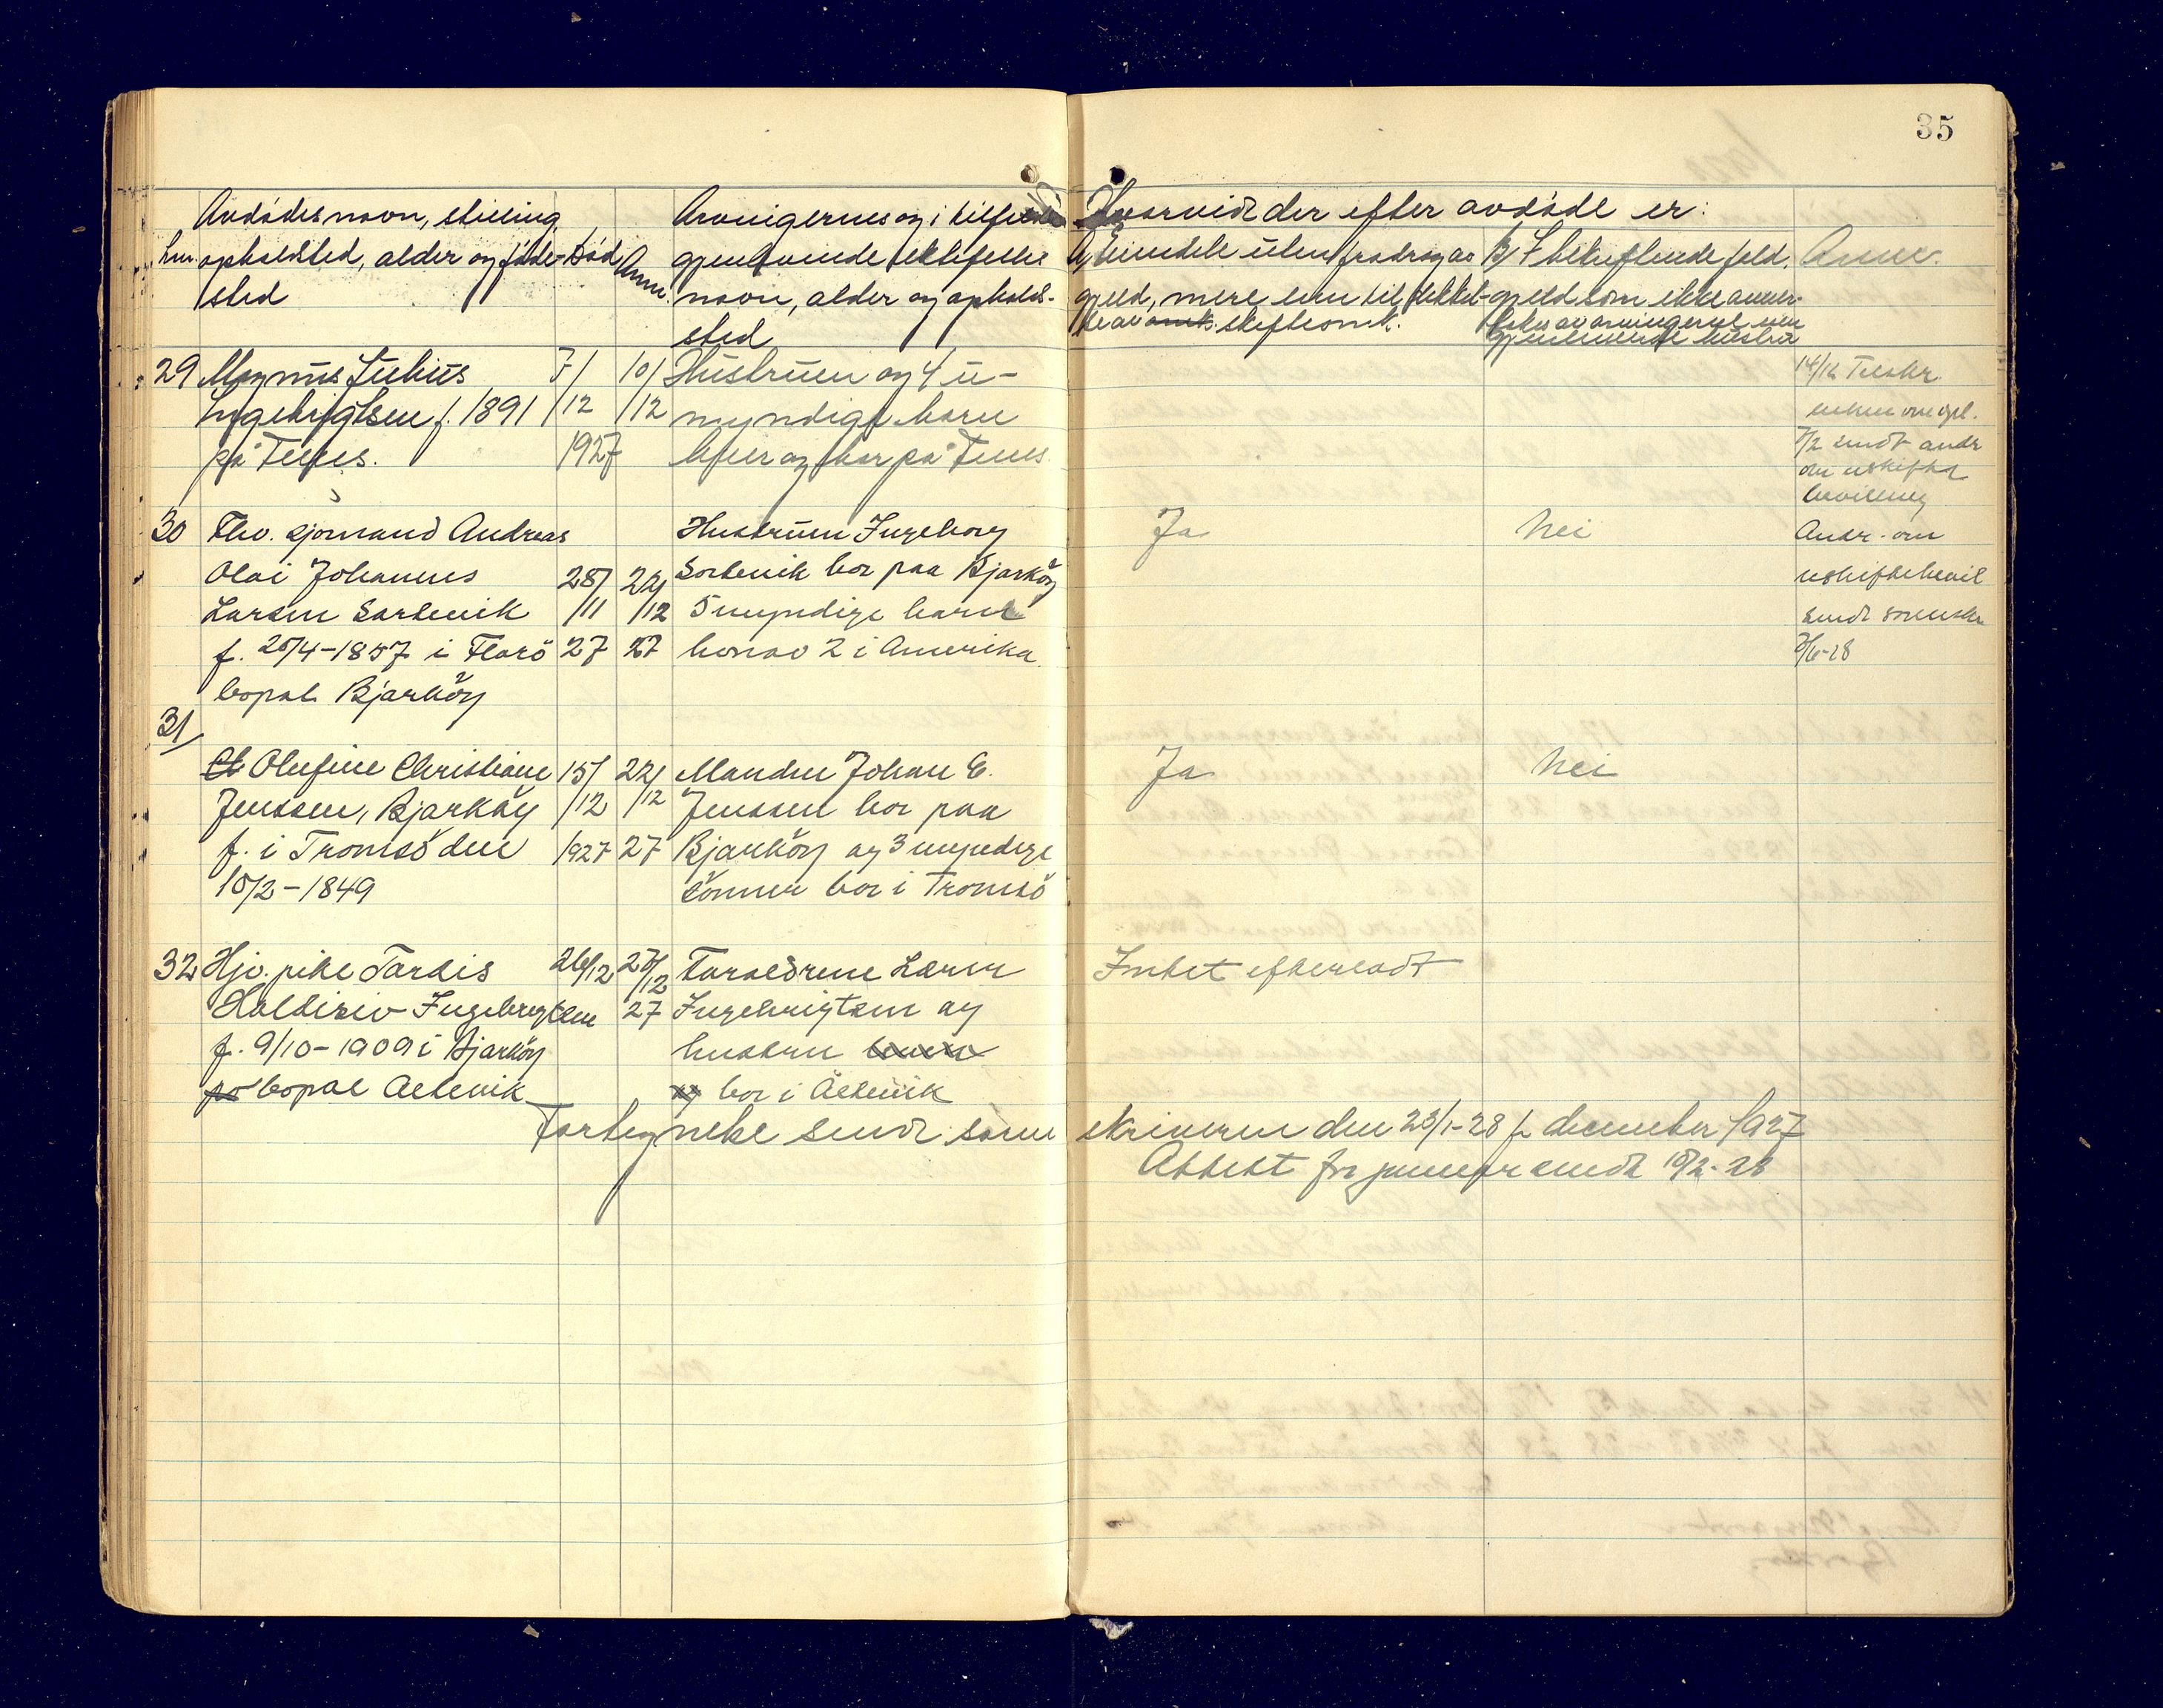 35
Avdödes navn, stilling,
Lnr. opholdsted, alder og föde-
sted
Död
Anm.
Arvingernes og i tilfælde
gjenlevende ektefelles
navn, alder og opholds-
sted
Hvorvidt der efter avdöde er:
A, Eiendele uten fradrag av
gjeld, mere enn til dekkel-
se av skifteomk.
B,
gjeld som ikke
av arvingerne
gjenlevende
Anm.
29 Magnus Julius
Ingebrigtsen f. 1891
på
7/
/12
1927
10/
/12
Hustruen og 4 u-
myndige barn
lever og bor på
14/12
7/2 sendt andr
om uskiftet
bevilling
30 Fhv. sjömand Andreas
Olai Johannes
Larsen
f. 25/4-1857 i Florö
bopæl Bjarköy
28/
/11
27
22/
/12
27
Hustruen Ingeborg
bor paa Bjarköy
5 myndige barn
hvorav 2 i Amerika.
Ja
Nei
Andr. om
uskiftebevil
sendt sorenskr
31/
Olufine Christiane
Jenssen, Bjarköy
f. i Tromsö den
10/2-1849
15/
/12
1927
22/
/12
27
Manden Johan E.
Jenssen bor paa
Bjarköy og 3 myndige
sönner bor i Tromsö
Ja
Nei
32 Hjv. pike Tordis
Haldis Ingebrigtsen
f. 9/10-1909 i Bjarköy
bopæl
26/12
27/12
27
Foreldrene Lærer
Ingebrigtsen og
hustru
bor i
Intet efterladt
Fortegnelse sendt soren
skriveren den 23/1-28 f december 1927
Attest for januar sendt 10/2-28